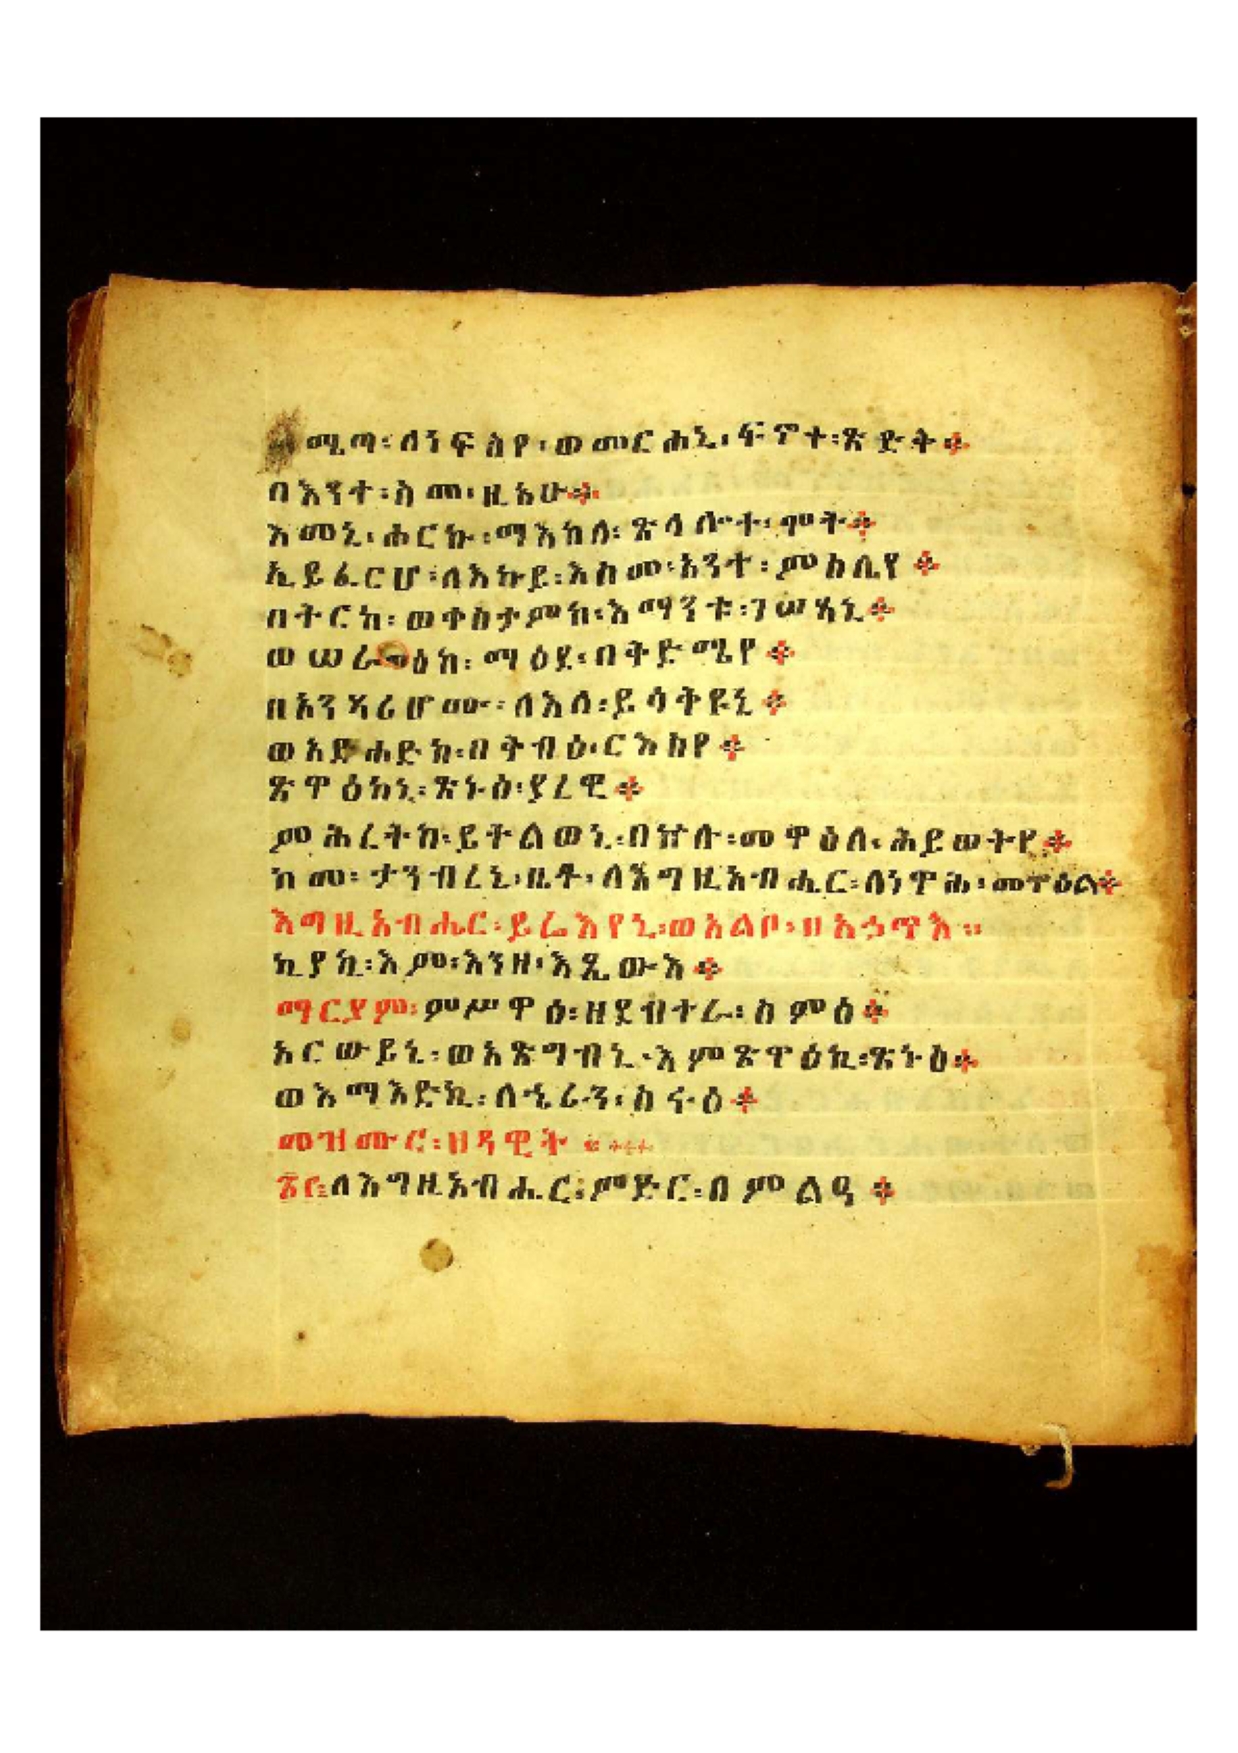 ሜጣ፡ ለነፍስየ፡ ወመርሐኒ፡ ፍኖተ፡ ጽድቅ።
በእንተ፡ ስመ፡ ዚአሁ።
እመኒ፡ ሖርኩ፡ ማእከለ፡ ጽላሎተ፡ ሞት።
ኢይፈርሆ፡ ለእኩይ፡ እስመ፡ አንተ፡ ምስሌየ።
በትርከ፡ ወቀስታምከ፡ እማንቱ፡ ገሠጻኒ።
ወሠራዕከ፡ ማዕደ፡ በቅድሜየ።
በአንጻሪሆሙ፡ ለእለ፡ ይሳቅዩኒ።
ወአጽሐድከ፡ በቅብዕ፡ ርእስየ።
ጽዋዕከኒ፡ ጽኑዕ፡ ያረዊ።
ምሕረትከ፡ ይትልወኒ፡ በኵሉ፡ መዋዕለ፡ ሕይወትየ።
ከመ፡ ታንብረኒ፡ ቤቱ፡ ለእግዚአብሔር፡ ለነዋሕ፡ መዋዕል።
እግዚአብሔር፡ ይሬእየኒ፡ ወአልቦ፡ ዘአኃጥእ።
ኪያኪ፡ እም፡ እንዘ፡ እጼውእ።
ማርያም፡ ምሥዋዕ፡ ዘደብተራ፡ ስምዕ።
አርውይኒ፡ ወአጽግብኒ፡ እምጽዋዕኪ፡ ጽኑዕ።
ወእማእድኪ፡ ለኄራን፡ ስሩዕ።
መዝሙር፡ ዘዳዊት።
፳፫፡ ለእግዚአብሔር፡ ምድር፡ በምልዓ።